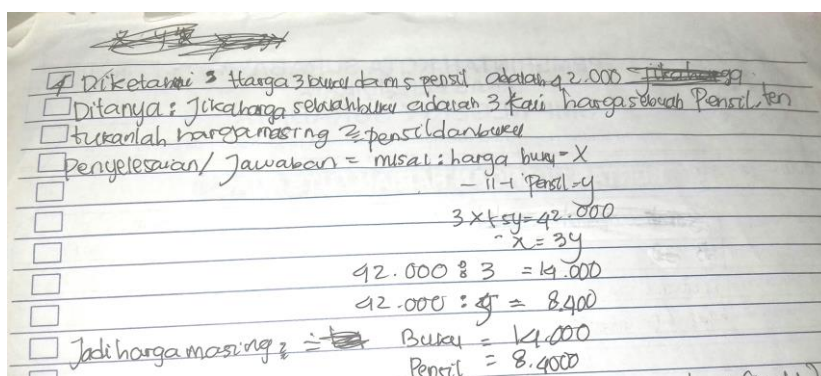 4 Diketahui : Harga 3 buku dam 5 pensil adalah 42.000
Ditanya : Jika harga sebuah buku adalah 3 kali harga sebuah Pensil, ten
tukanlah harga masing 2 pensil dan buku
Penyelesaian / Jawaban = misal : harga buku = X
- 11 - Pensil = y
3x + 5y = 42.000
x = 3y
42.000 : 3 = 14.000
42.000 : 5 = 8.400
Jadi harga masing 2 = Buku = 14.000
Pensil = 8.4000